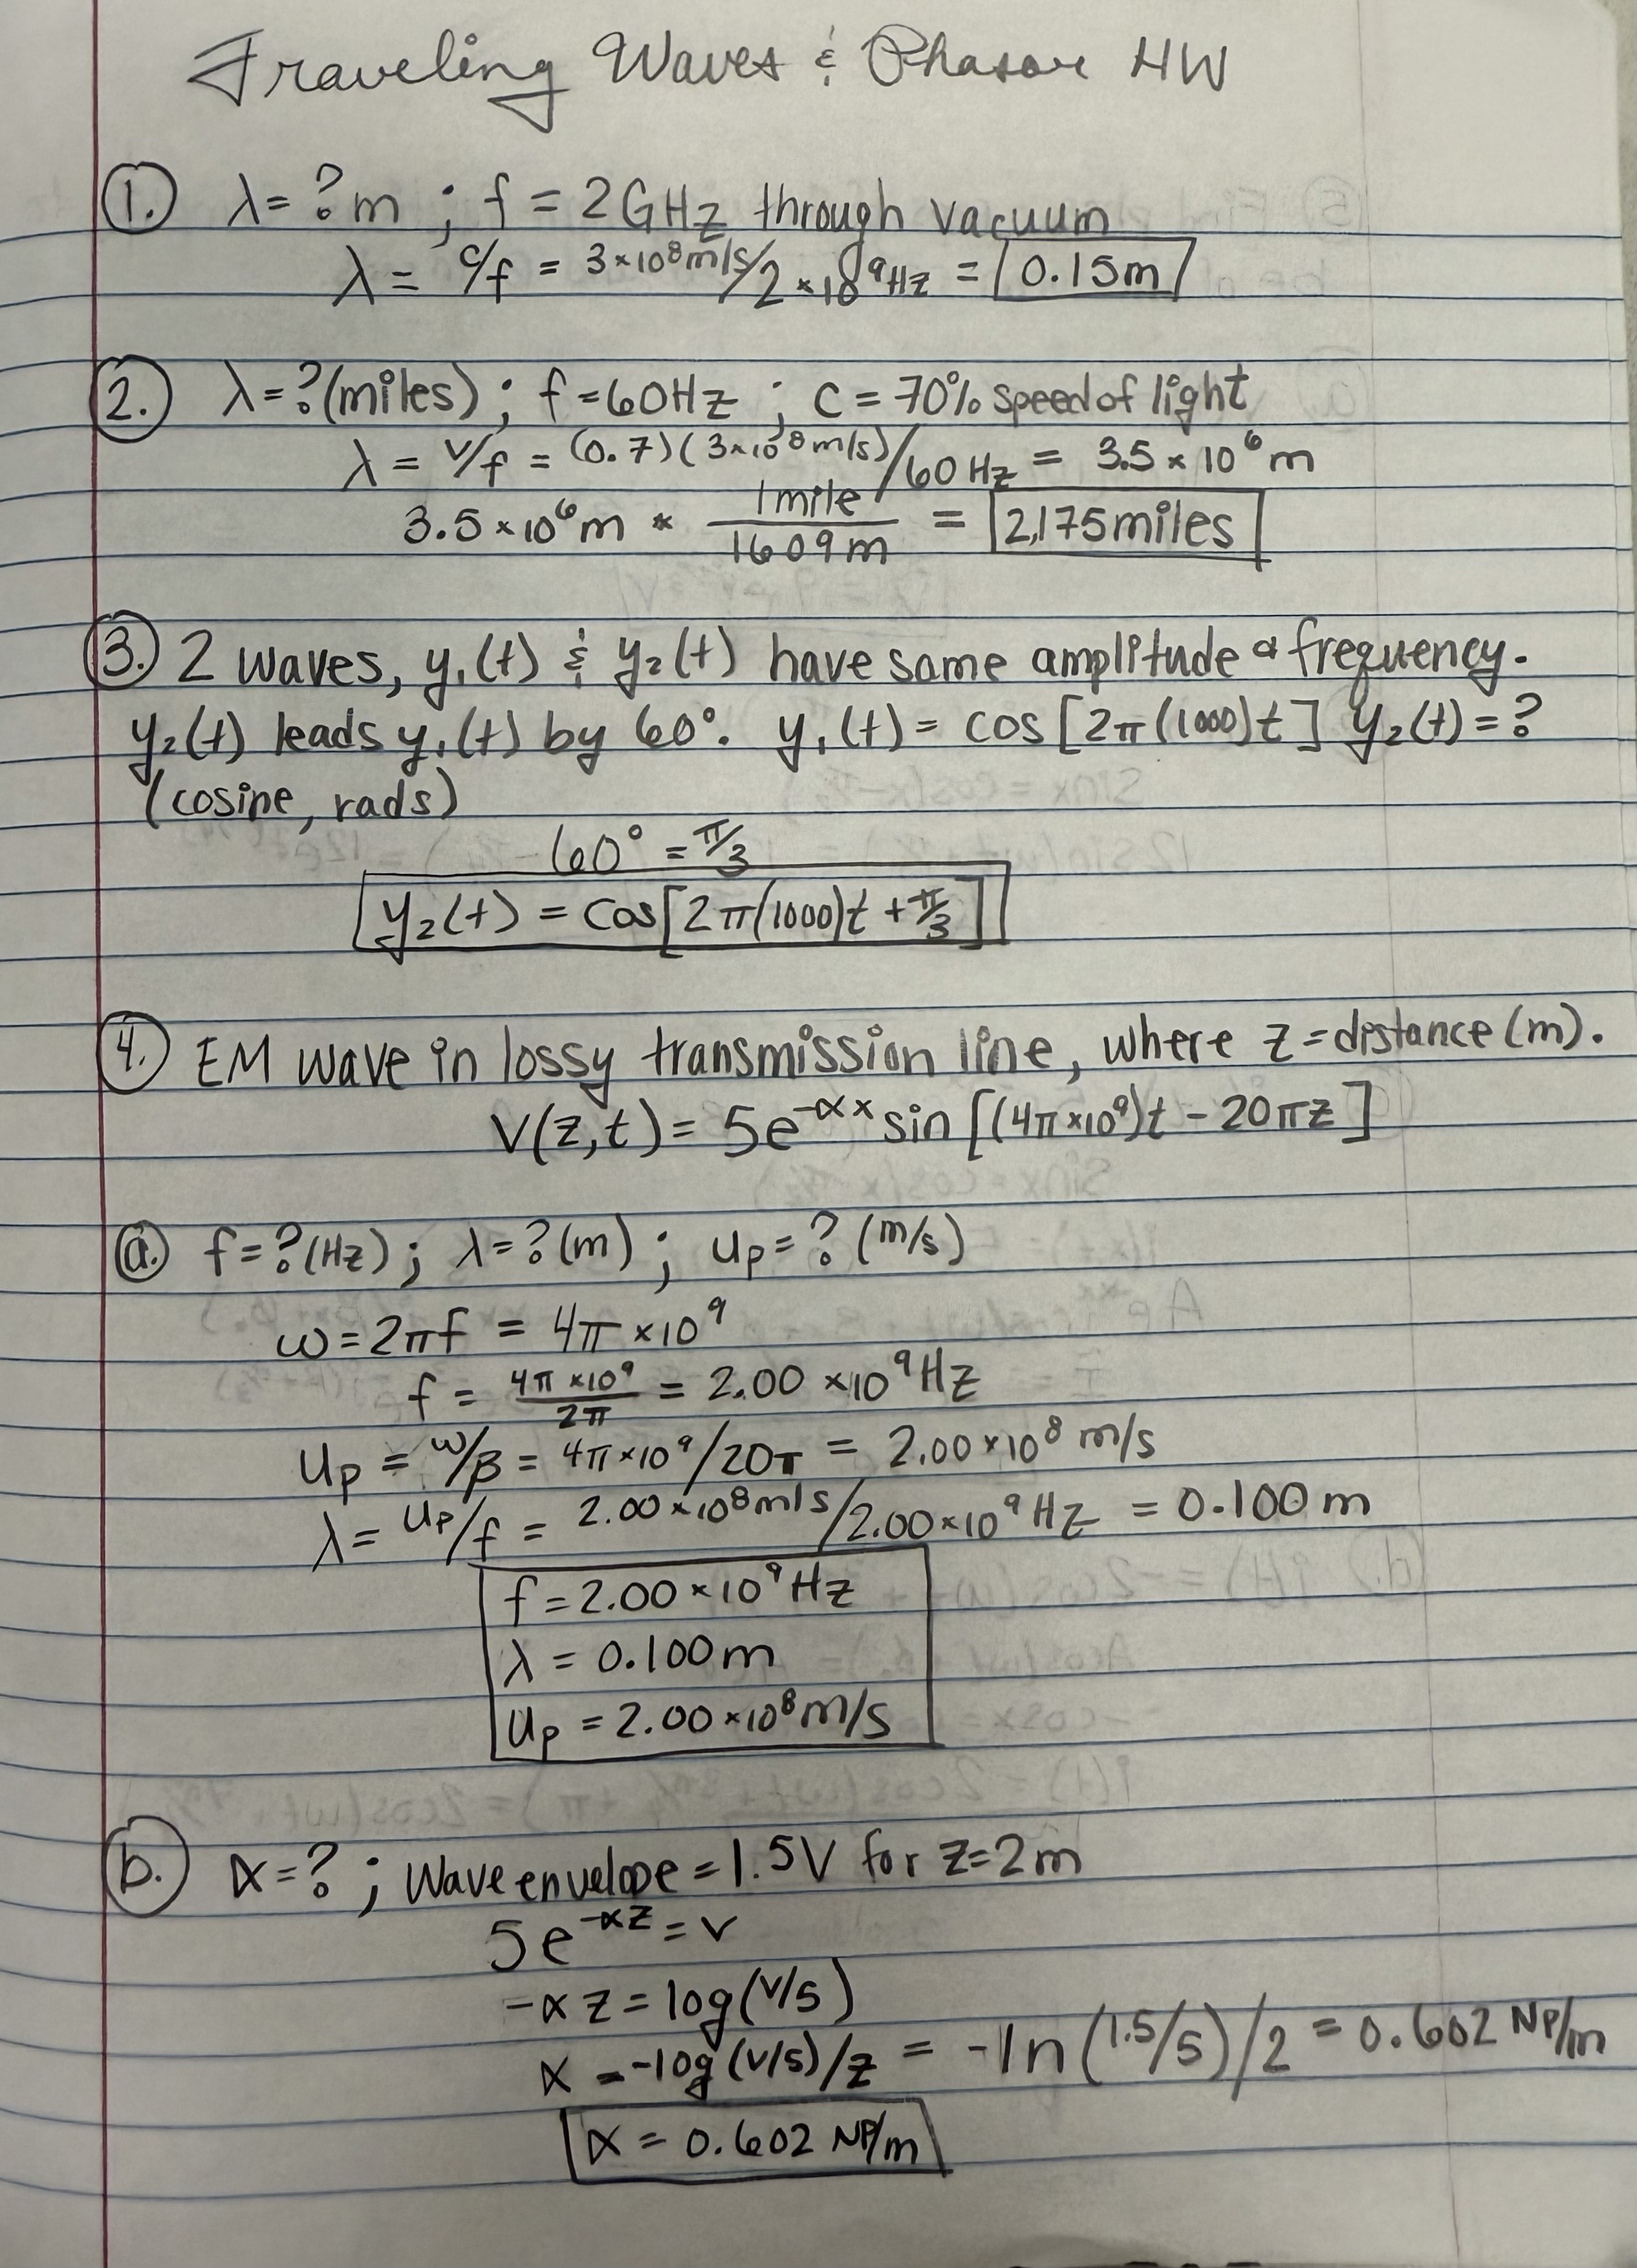 Traveling Waves & Phasor HW
1. λ = ? m ; f = 2 GHz through vacuum
λ = c/f = 3×10⁸ m/s / 2×10⁹ Hz = 0.15m
2. λ = ? (miles) ; f = 60 Hz ; c = 70% speed of light
λ = v/f = (0.7)(3×10⁸ m/s) / 60 Hz = 3.5 × 10⁶ m
3.5 × 10⁶ m * 1 mile / 1609 m = 2,175 miles
3. 2 waves, y₁(t) & y₂(t) have same amplitude & frequency.
y₂(t) leads y₁(t) by 60°. y₁(t) = cos[2π(1000)t] y₂(t) = ?
(cosine, rads)
60° = π/3
y₂(t) = cos[2π(1000)t + π/3]
4. EM wave in lossy transmission line, where z = distance (m).
V(z,t) = 5e^(-αx) sin[(4π×10⁹)t - 20πz]
a. f = ? (Hz) ; λ = ? (m) ; up = ? (m/s)
ω = 2πf = 4π × 10⁹
f = 4π × 10⁹ / 2π = 2.00 × 10⁹ Hz
Up = ω/β = 4π×10⁹ / 20π = 2.00×10⁸ m/s
λ = Up/f = 2.00×10⁸ m/s / 2.00×10⁹ Hz = 0.100 m
f = 2.00 × 10⁹ Hz
λ = 0.100m
Up = 2.00×10⁸ m/s
b. α = ? ; Wave envelope = 1.5V for z = 2m
5e^(-αz) = v
-αz = log(v/5)
α = -log(v/5)/z = -ln(1.5/5)/2 = 0.602 NP/m
α = 0.602 NP/m